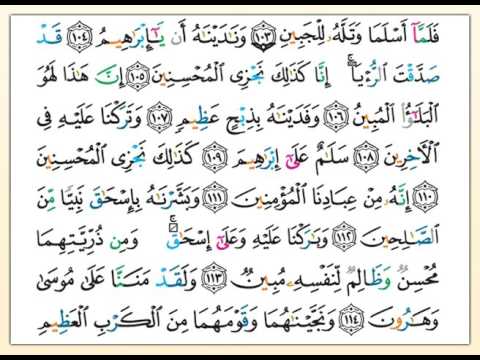 فَلَمَّآ أَسْلَمَا وَتَلَّهُۥ لِلْجَبِينِ ١٠٣ وَنَٰدَيْنَٰهُ أَن يَٰٓإِبْرَٰهِيمُ ١٠٤ قَدْ
صَدَّقْتَ ٱلرُّءْيَآ ۚ إِنَّا كَذَٰلِكَ نَجْزِى ٱلْمُحْسِنِينَ ١٠٥ إِنَّ هَٰذَا لَهُوَ
ٱلْبَلَٰٓؤُا۟ ٱلْمُبِينُ ١٠٦ وَفَدَيْنَٰهُ بِذِبْحٍ عَظِيمٍ ١٠٧ وَتَرَكْنَا عَلَيْهِ فِى
ٱلْءَاخِرِينَ ١٠٨ سَلَٰمٌ عَلَىٰٓ إِبْرَٰهِيمَ ١٠٩ كَذَٰلِكَ نَجْزِى ٱلْمُحْسِنِينَ
١١٠ إِنَّهُۥ مِنْ عِبَادِنَا ٱلْمُؤْمِنِينَ ١١١ وَبَشَّرْنَٰهُ بِإِسْحَٰقَ نَبِيًّا مِّنَ
ٱلصَّٰلِحِينَ ١١٢ وَبَٰرَكْنَا عَلَيْهِ وَعَلَىٰٓ إِسْحَٰقَ ۚ وَمِن ذُرِّيَّتِهِمَا
مُحْسِنٌ وَظَالِمٌ لِّنَفْسِهِۦ مُبِينٌ ١١٣ وَلَقَدْ مَنَنَّا عَلَىٰ مُوسَىٰ
وَهَٰرُونَ ١١٤ وَنَجَّيْنَٰهُمَا وَقَوْمَهُمَا مِنَ ٱلْكَرْبِ ٱلْعَظِيمِ